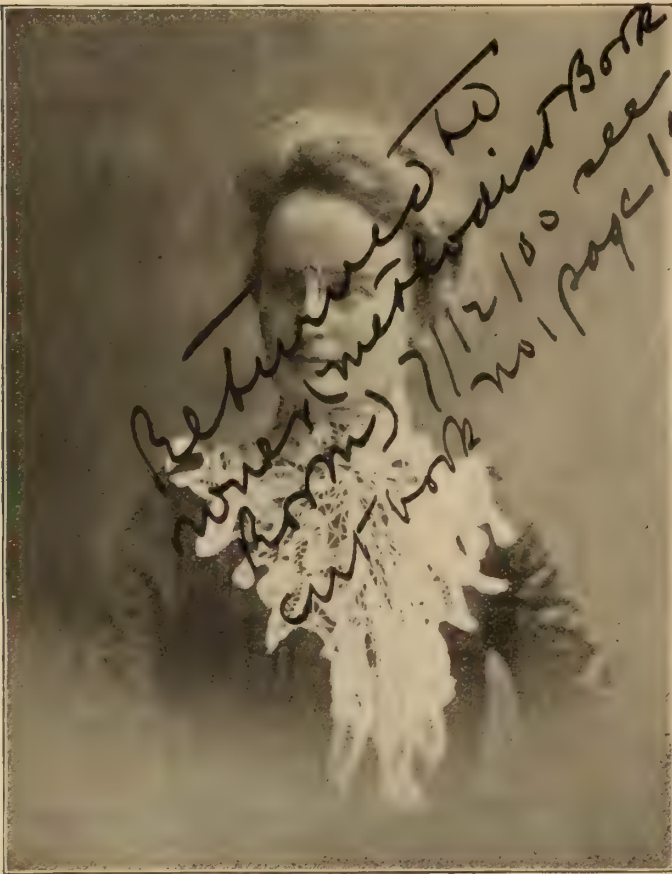 Returned to
Jones (methodist Book
Room) 7/12/00 see
cut book no 1 page 1